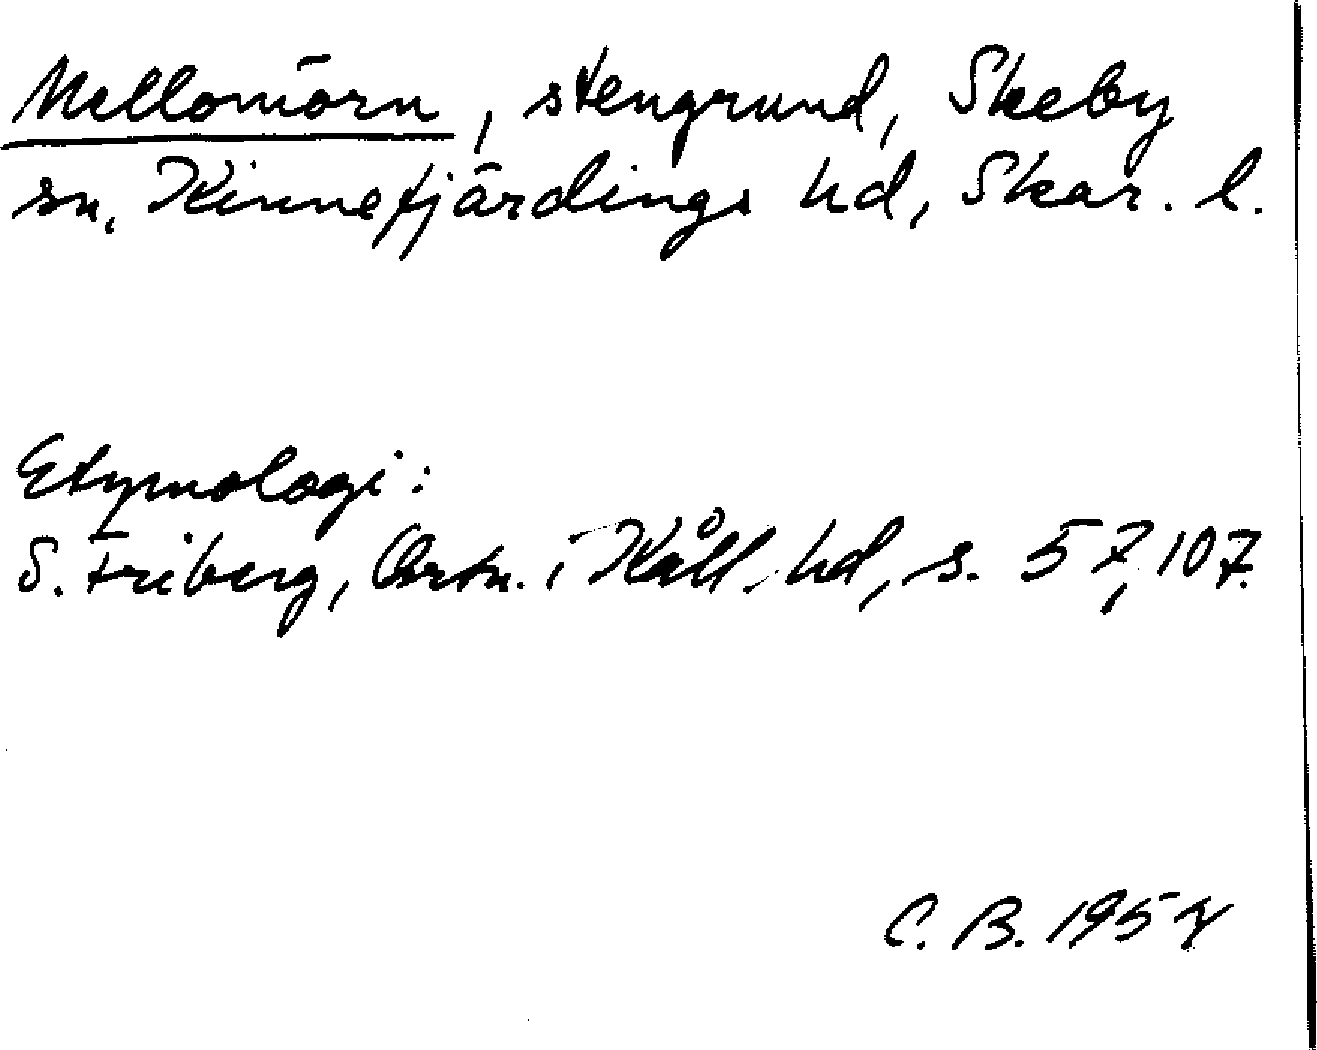 Mellomörn, stengrund, Skeby
sn, Kinnefjärdings hd, Skar. l.
Etymologi:
S. Friberg, Ortn. i Kåll. hd, s. 57, 107.
C. B. 1957